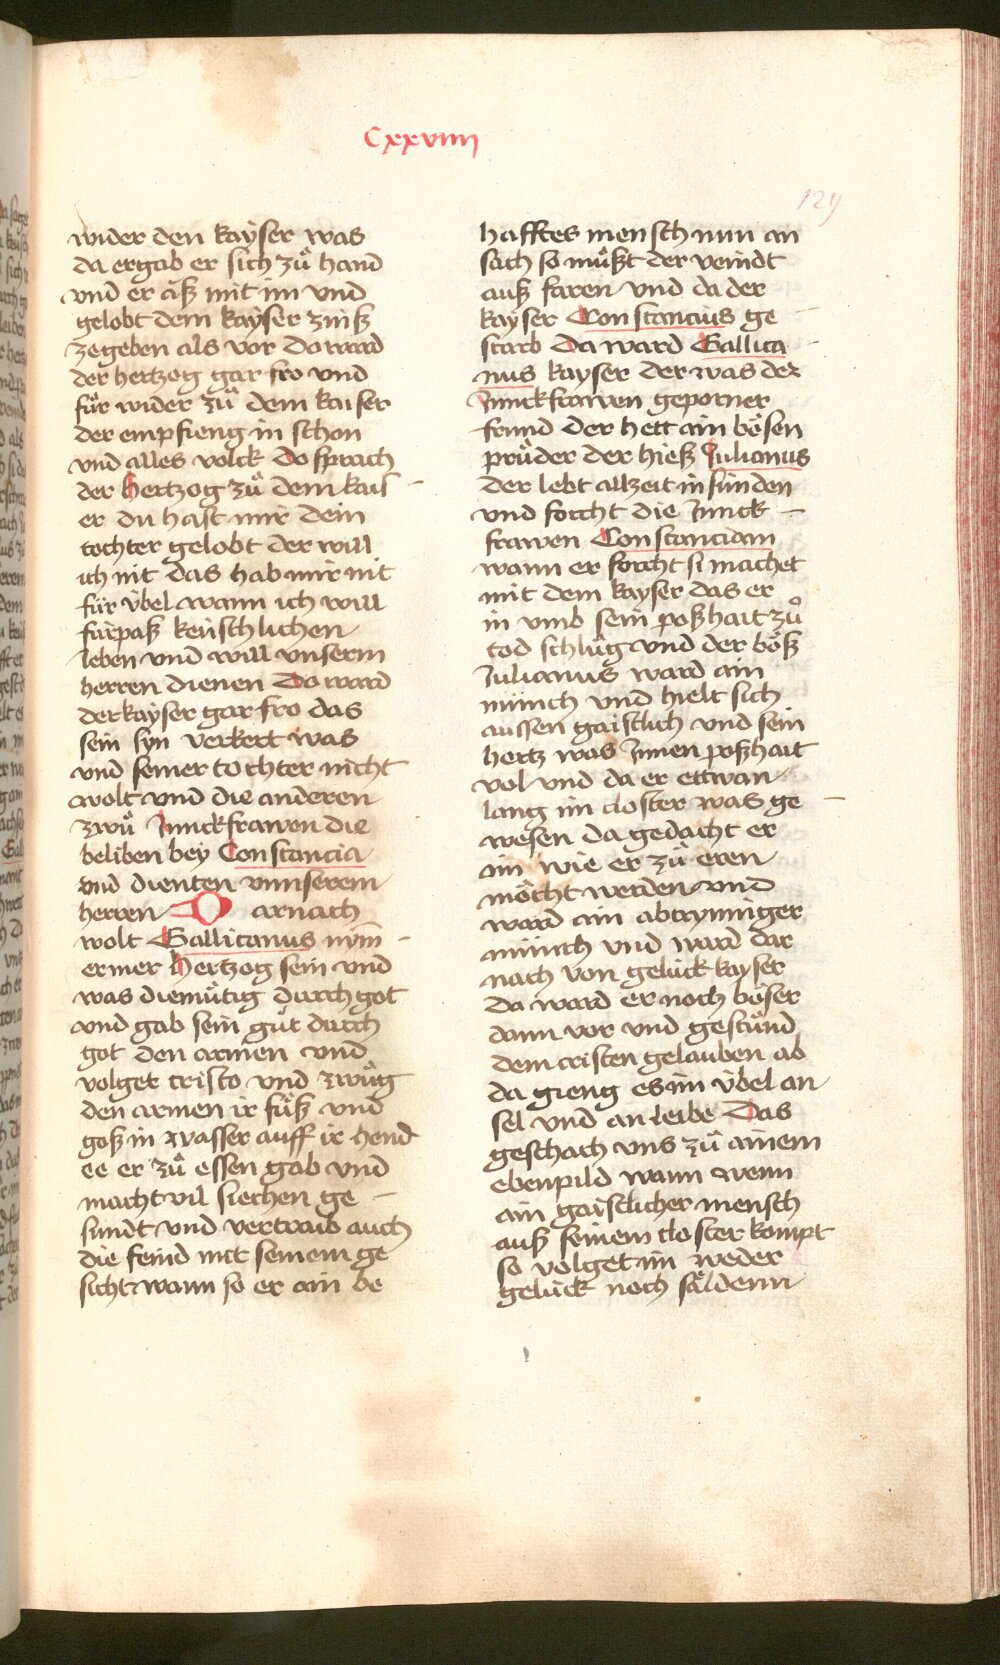 Cxxviiii
129
wider den kayser was
da ergab er sich zů hand
vnd er aß mit im vnd
gelobt dem kayser zinß
zegeben als vor Do ward
der hertzog gar fro vnd
für wider zů dem kaiser
der empfieng in schon
vnd alles volck Do sprach
der hertzog zů dem kais
er du hast mir dein
tochter gelobt der will
ich nit das hab mir nit
für v̈bel wann ich will
fürpaß keüschlichen
leben vnd will vnserm
herren dienen Do ward
der kayser gar fro das
sein syn verkert was
vnd seiner tochter nicht
wolt vnd die anderen
zwů Junckfrawen die
beliben bey Constancia
vnd dienten vnnserem
herren Darnach
wolt Gallicanus nÿm
ermer hertzog sein vnd
was diemůtig durch got
vnd gab sein gůt durch
got den armen vnd
volget cristo vnd zwůg
den armen ir fůß vnd
goß in wasser auff ir hend
ee er zů essen gab vnd
macht vil siechen ge
sundt vnd vertraib auch
die feind mit seinem ge
sicht wann so er ain be
hafftes mensch nun an
sach so můßt der veindt
auß faren vnd da der
kayser Constancius ge
starb Da ward Gallica
nus kayser der was der
Junckfrawen geporner
freund der hett ain bösen
průder der hieß Julianus
der lebt allzeit in sünden
vnd forcht die Junck
frawen Constanciam
wann er forcht si machet
mit dem kayser das er
in vmb sein poßhait zů
tod schlůg vnd der böß
Julianus ward ain
münch vnd hielt sich
aussen gaistlich vnd sein
hertz was Jnnen poßhait
vol vnd da er ettwan
lang im closter was ge
wesen da gedacht er
im wie er zů eren
möcht werden vnd
ward ain abtrynniger
münch vnd ward dar
nach von gelück kayser
da ward er noch böser
dann vor vnd gestůnd
dem cristen gelauben ab
da gieng es im v̈bel an
sel vnd an leibe Das
geschach vns zů ainem
ebenpild wann wenn
ain gaistlicher mensch
auß seinem closter kompt
so volget im weder
gelück noch säldenn